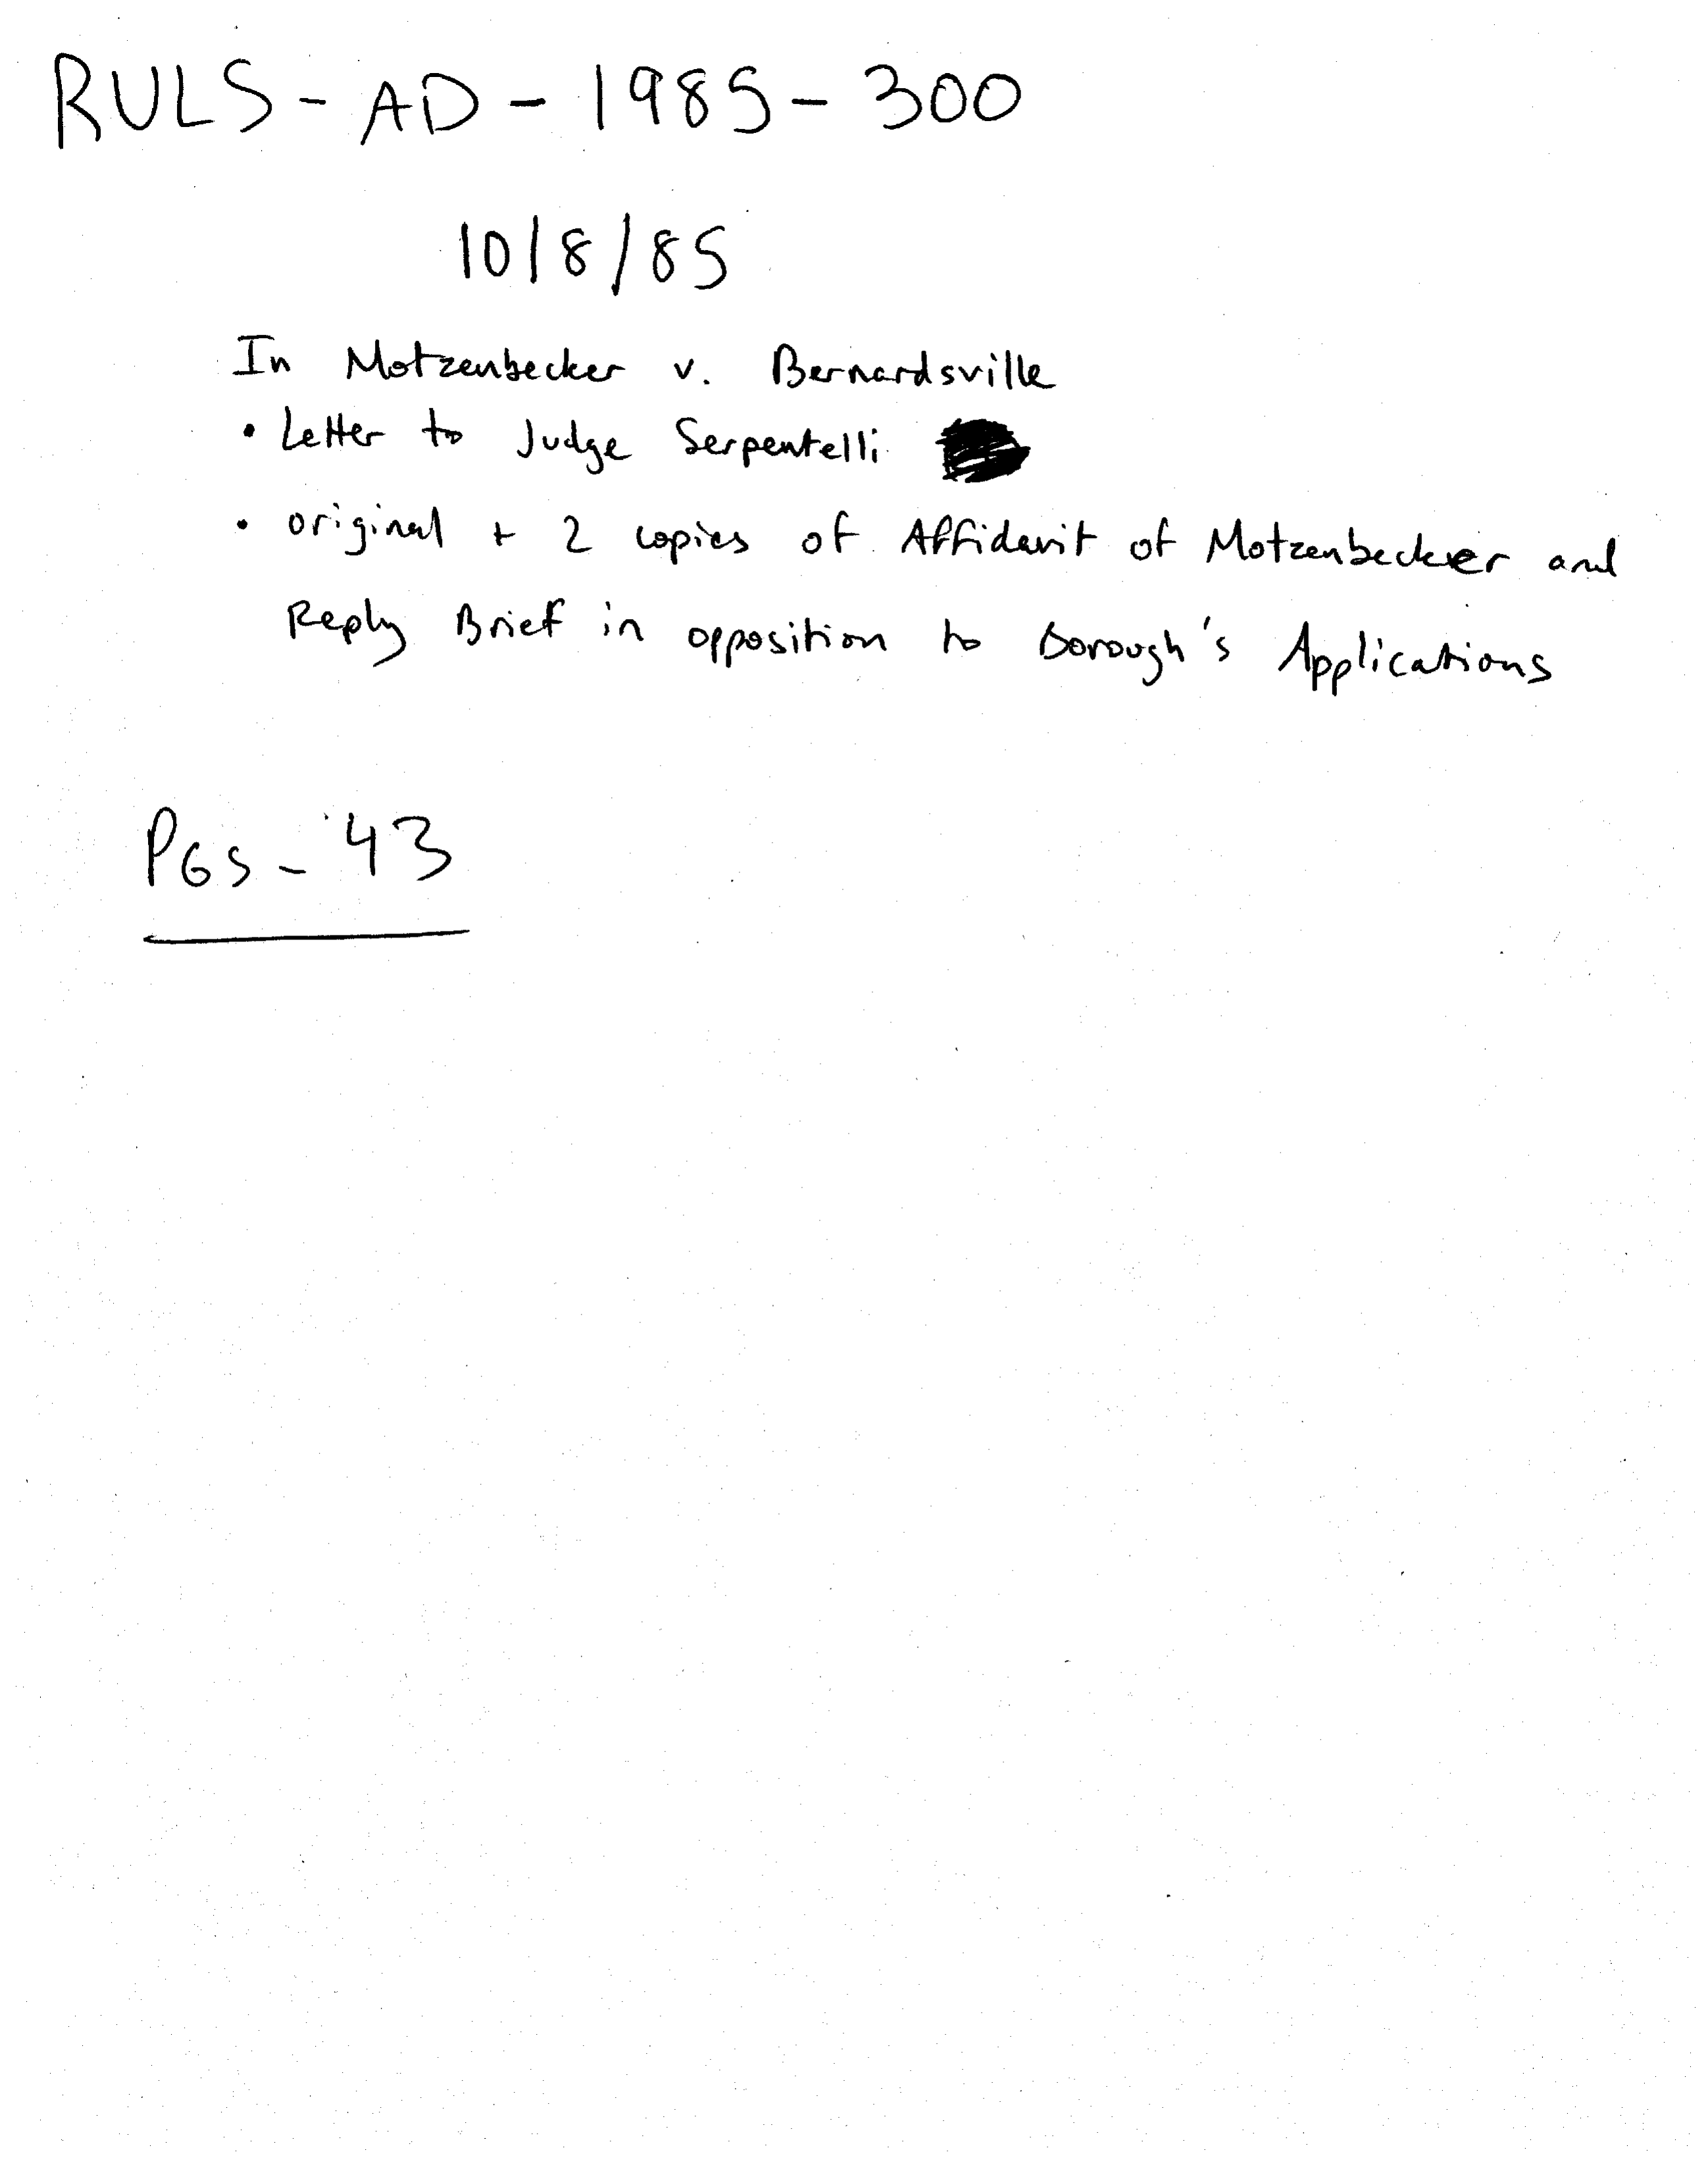 RULS - AD - 1985 - 300
10/8/85
In Motzenbecker v. Bernardsville
• Letter to Judge Serpentelli
• original + 2 copies of Affidavit of Motzenbecker and
Reply Brief in opposition to Borough's Applications
PGS - 43